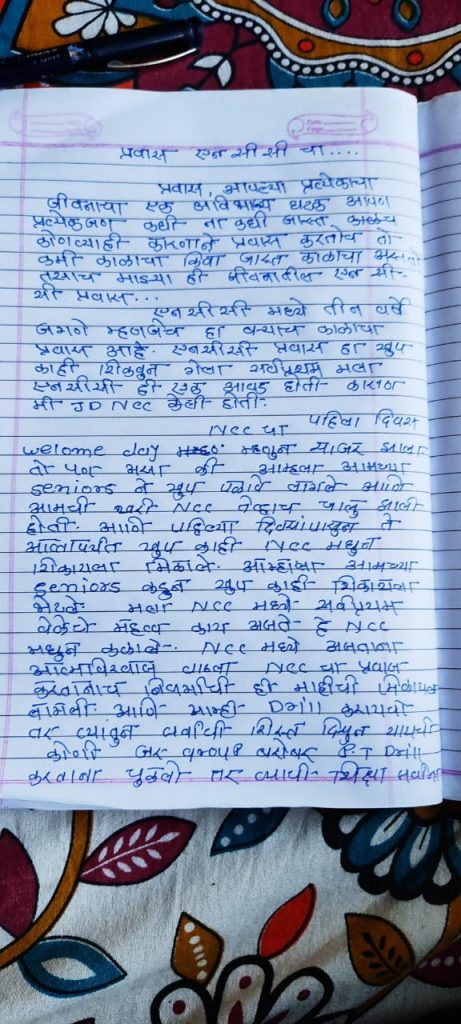 प्रवास एन सी सी चा....
प्रवास, आपल्या प्रत्येकाचा
जीवनाचा एक अविभाज्य घटक आपण
प्रत्येकजण कधी ना कधी जास्त काळच
कोणत्याही कारणाने प्रवास करतोच तो
कमी काळाचा किंवा जास्त काळाचा असतो
तसाच माझ्या ही जीवनातील एन सी-
सी प्रवास...
एन सी सी मध्ये तीन वर्षे
जगणे म्हणजेच हा बऱ्याच काळाचा
प्रवास आहे. एनसीसी प्रवास हा खुप
काही शिकवुन गेला सर्वप्रथम मला
एनसीसी ही एक आवड होती कारण
मी JD NCC केली होती.
NCC चा पहिला दिवस
welome day म्हणुन साजर झाला
तो पण असा की आम्हाला आमच्या
seniors ने खुप पळावे लागले आणि
आमची खरी NCC तेव्हाच चालु झाली
होती. आणि पहिल्या दिवसांपासुन ते
आत्तापर्यंत खुप काही NCC मधुन
शिकायला मिळाले. आम्हाला आमच्या
seniors कडुन खुप काही शिकायला
भेटले. मला NCC मध्ये सर्वप्रथम
वेळेचे महत्व काय असते हे NCC
मधुन कळाले. NCC मध्ये असताना
आत्मविश्वास वाढला NCC चा प्रवास
करतानाच नियमांची ही माहीती मिळायला
लागली आणि आम्ही Drill करायचो
तर त्यातुन सर्वांची शिस्त दिसुन यायची
कोणी जर बरोबर P.T Drill
करताना चुकले तर त्याची शिक्षा सर्वांना